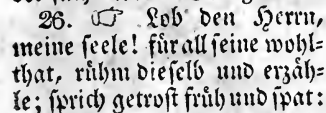 26. ☞ Lob den Herrn,
meine seele! für all seine wohl=
that, rühm dieselb und erzäh=
le; sprich getrost früh und spat: